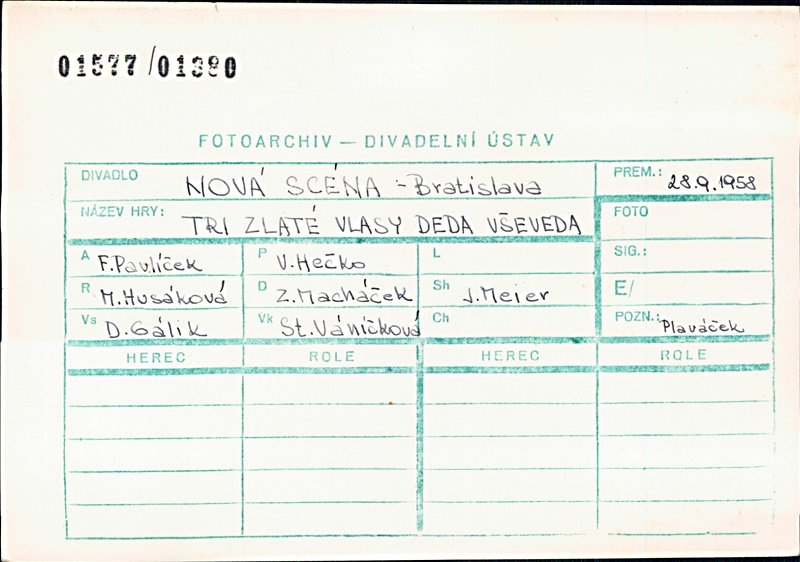 01577/01380
FOTOARCHIV — DIVADELNÍ ÚSTAV
DIVADLO NOVÁ SCÉNA - Bratislava PREM.: 28.9.1958
NÁZEV HRY: TRI ZLATÉ VLASY DEDA VŠEVEDA FOTO
A F.Pavlíček P V.Hečko L SIG.:
R M.Husáková D Z.Macháček Sh J.Meier E/
Vs D.Gálik Vk St.Váníčková Ch POZN.: Plaváček
HEREC ROLE HEREC ROLE